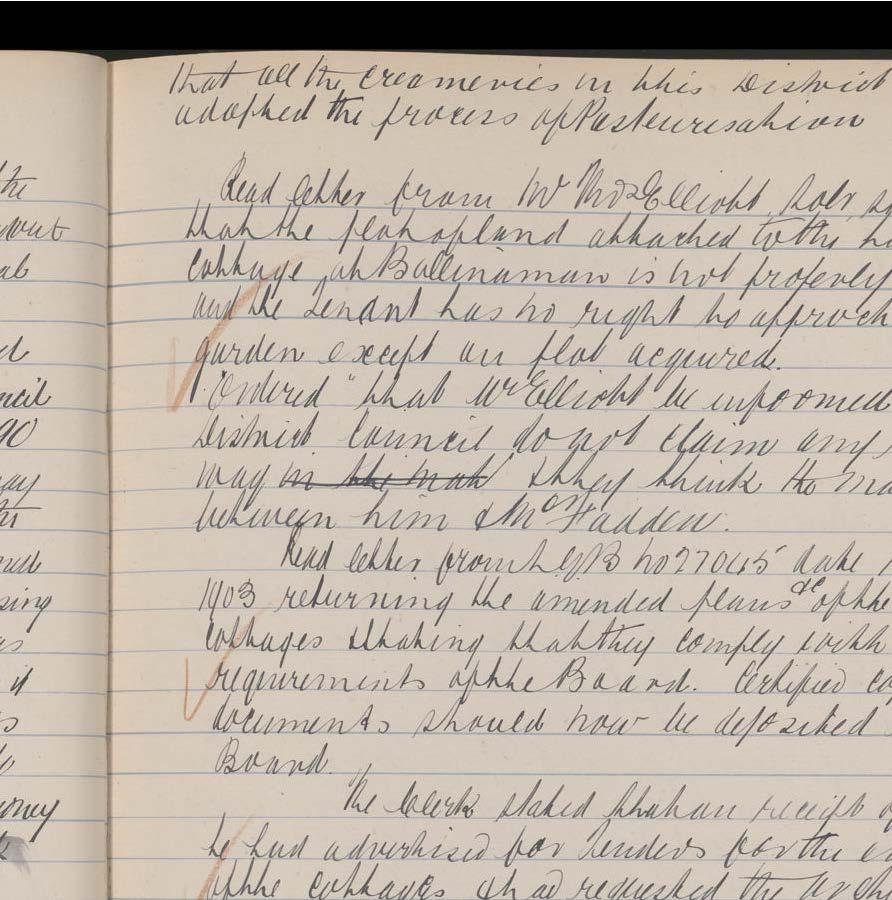 the
al
90
if
money
that all the Creameries in this District
adopted the process of Pasteurisation
Read letter from Mr Thos Elliott Solr
that the plot of land attached to the
Cottage at Ballinaman is not properly
and the Tenant has no right to approch
garden except on plot acquired.
"Ordered" that Mr Elliott be infoomed
District Council do not claim any
way in the mat & they think the
between him & McFadden.
Read letter from LGB No 27045 date
1903 returning the amended plans &c of the
Cottages stating that they comply with
requirements of the Board. Certified
documents should now be deposited
Board.
The Clerk stated that on receipt
he had advertised for Tenders for the
of the cottages & had requested the